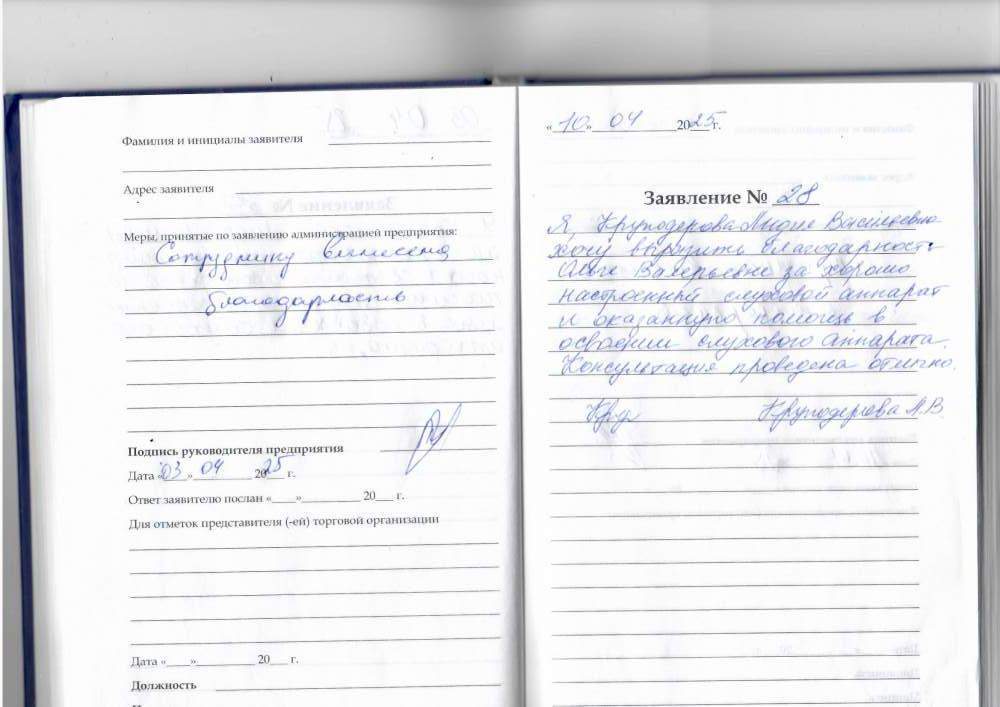 Фамилия и инициалы заявителя
Адрес заявителя
Меры, принятые по заявлению администрацией предприятия:
Сотруднику вынесена
благодарность
Подпись руководителя предприятия
Дата «03» 04 2025 г.
Ответ заявителю послан «___»__________ 20___ г.
Для отметок представителя (-ей) торговой организации
Дата «____»__________ 20___ г.
Должность
«10» 04 2025г.
Заявление № 28
Я, Круподерова Лидие Васильевна
хочу выразить благодарность
Ольге Валерьевне за хорошо
настроенный слуховой аппарат
и оказанную помощь в
освоении слухового аппарата.
Консультация проведена отлично.
Круподерова Л.В